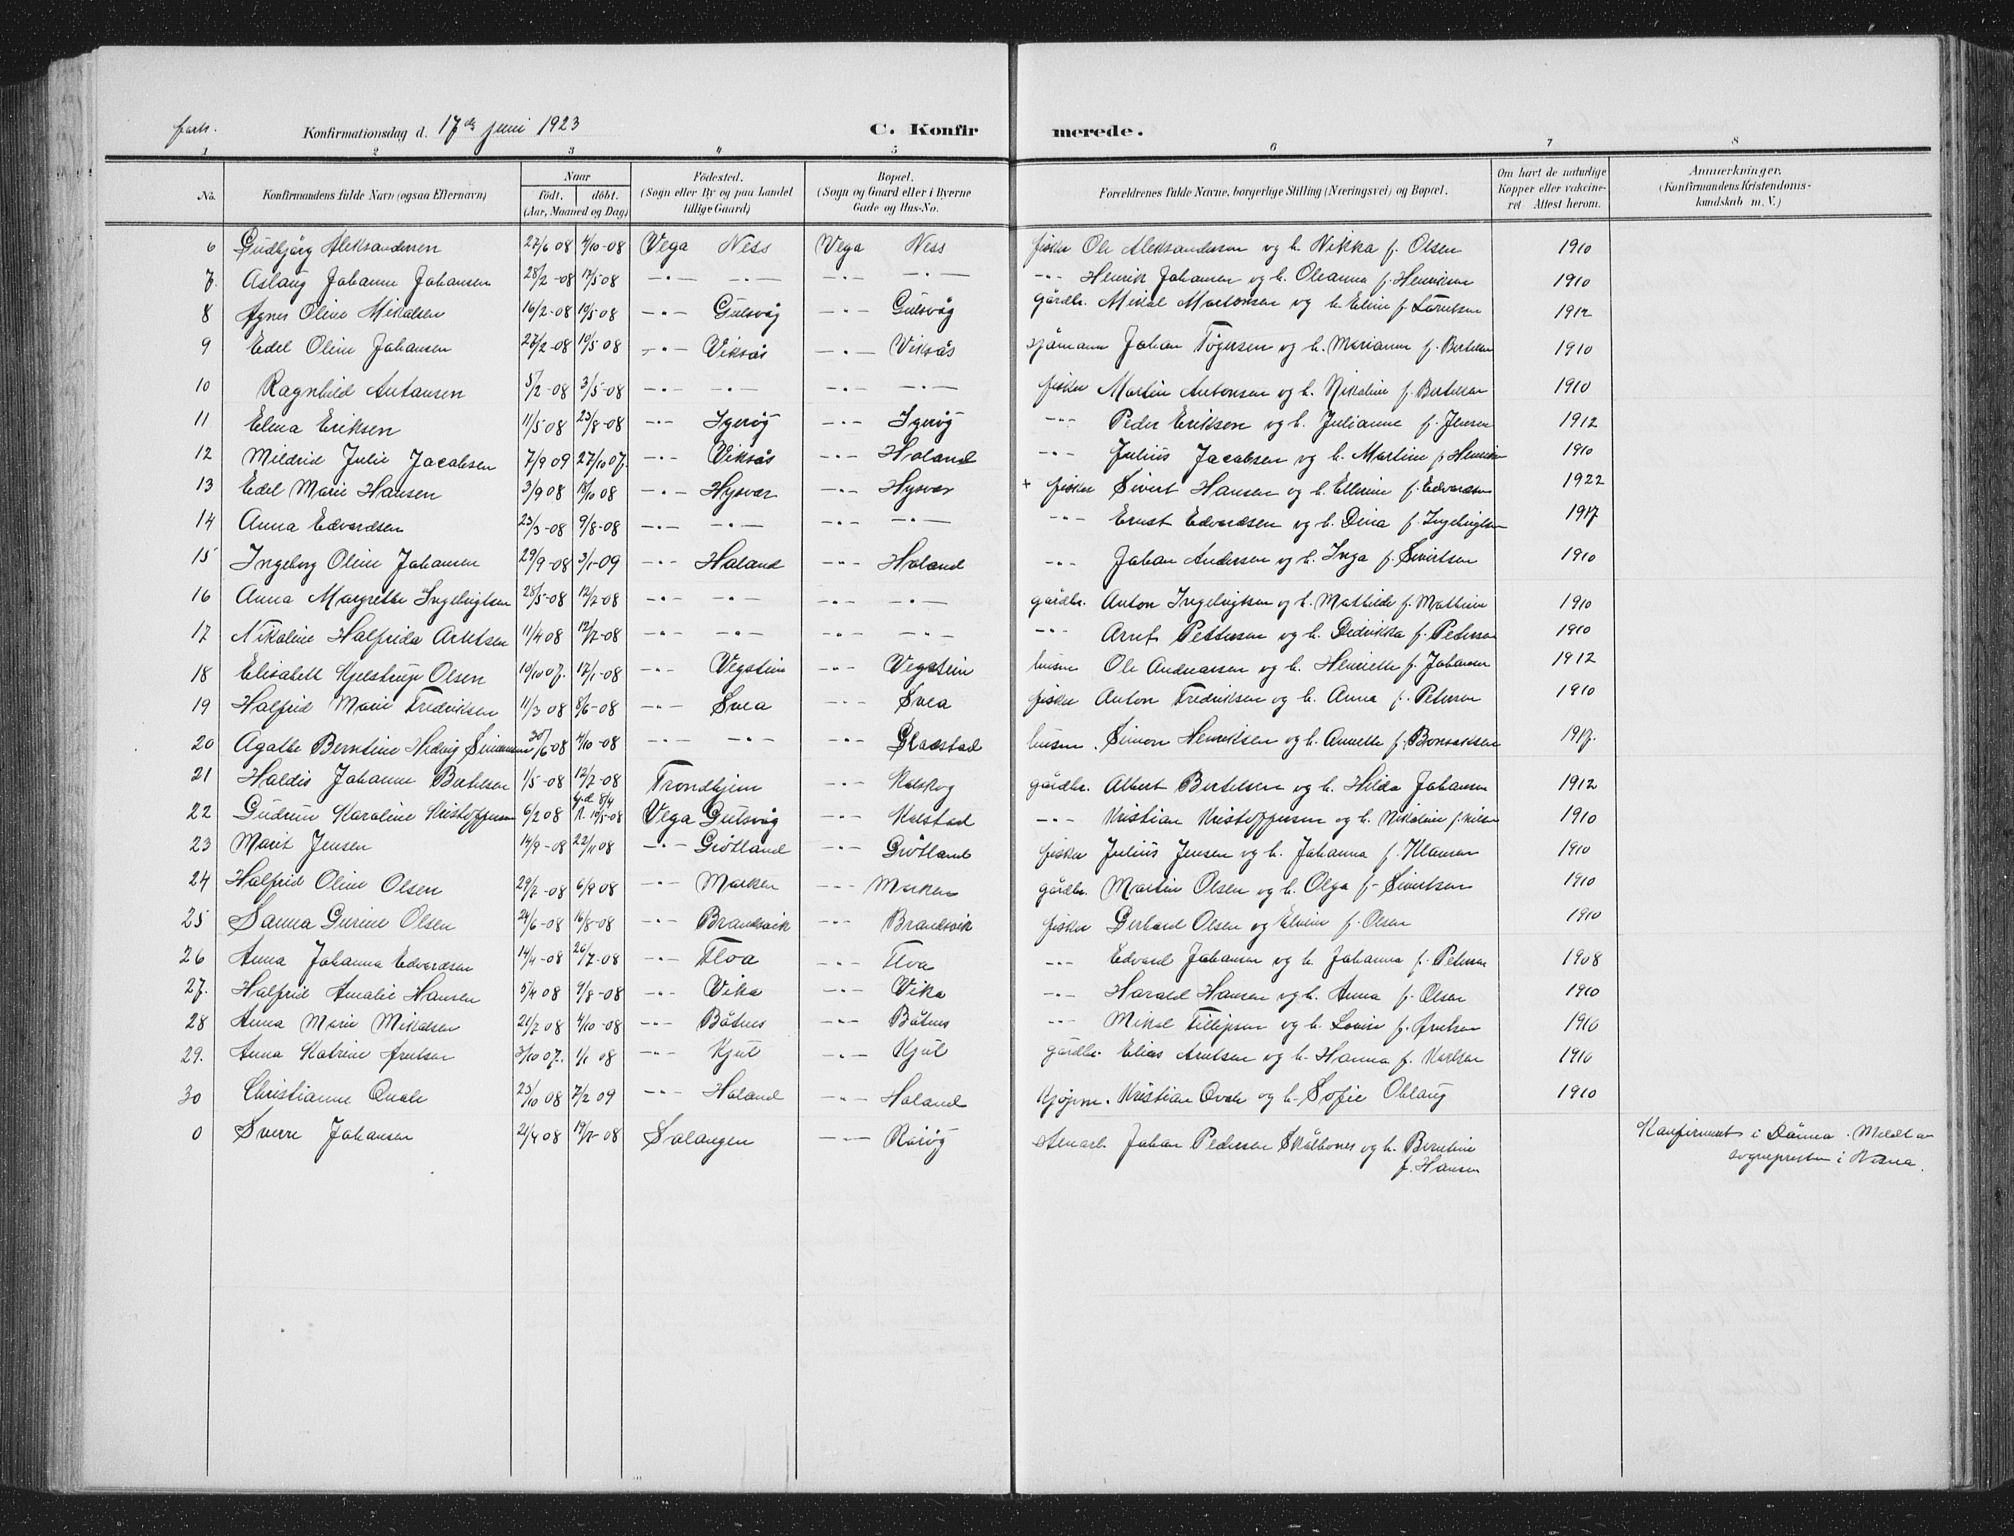 forts. Konfirmationsdag d. 17de juni 1923 C. Konfirmerede.
1 2 3 4 5 6 7 8
No. Konfirmandens fulde Navn (ogsaa Efternavn) Naar født. døbt. (Aar, Maaned og Dag) Fødested. (Sogn eller By og paa Landet tillige Gaard) Bopæl. (Sogn og Gaard eller i Byerne Gade og Hus-No. Forældrenes fulde Navne, borgerlige Stilling (Næringsvei) og Bopæl. Om havt de naturlige Kopper eller vakcineret. Attest herom. Anmærkninger. (Konfirmandens Kristendomskundskab m. V.)
6 Gudbjørg Aleksandersen 27/6 08 4/10-08 Vega Ness Vega Ness fisker Ole Aleksandersen og h. Nikka f. Olsen 1910
7. Aslaug Johanne Johansen 28/2-08 17/5 08 -"- -"- -"- -"- -"- Henrik Johansen og h. Oleanna f. Henriksen 1910
8 Agnes Oline Mikalsen 16/2-08 10/5 08 -"- Gulsvåg -"- Gulsvåg gårdbr. Mikal Martonsen og h. Eline f. 1912
9 Edel Oline Johansen 27/2-08 10/5 08 -"- Viksås -"- Viksås sjømann Johan Tøgersen og h. Marianne f. Bertelsen 1910
10 Ragnhild Antonsen 5/2-08 3/5-08 -"- -"- -"- fisker Martin Antonsen og h. Nikoline f. Bertelsen 1910
11 Elma Eriksen 11/5-08 23/8-08 -"- Igerøy -"- Igerøy -"- Peder Eriksen og h. Julianne f. Jensen 1912
12 Mildrid Julie Jacobsen 7/9 09 27/10 07. -"- Viksås -"- Holand -"- Julius Jacobsen og h. Martine f. Henriksen 1910
13 Edel Marie Hansen 3/9 08 18/10 08 -"- Hysvær -"- Hysvær + fisker Sivert Hansen og h. Ellerine f. Edvardsen 1922
14 Anna Edvardsen 23/3-08 9/8-08 -"- -"- -"- -"- -"- Ernst Edvardsen og h. Dina f. Ingebrigtsen 1917
15 Ingeborg Oline Johansen 29/9-08 3/1-09 -"- Holand -"- Holand -"- Johan Andersen og h. Inga f. Sivertsen 1910
16 Anna Margrethe Ingebrigtsen 28/5-08 12/7-08 -"- -"- -"- -"- gårdbr. Anton Ingebrigtsen og h. Mathilde f. 1910
17 Nikoline Halfrida Arntsen 11/4 08 12/7-08 -"- -"- -"- -"- -"- Arnt Pettersen og h. Dedrikka f. Pedersen 1910
18 Elisabett Kjelstrup Olsen 10/10 07. 12/1-08 -"- Vegstein -"- Vegstein husm Ole Andreassen og h. Henriette f. Johansen 1912
19 Halfrid Marie Fredriksen 11/3 08 8/6-08 -"- Svea -"- Svea fisker Anton Fredriksen og h. Anna f. Petersen 1910
20 Agathe Berntine Hedvig Simonsen 30/6 08 4/10-08 -"- -"- Gladstad husm. Simon Henriksen og h. Annette f. Bonsaksen 1917.
21 Haldis Johanne Bertelsen 1/5-08 12/7-08 Trondhjem -"- Kolskog gårdbr. Albert Bertelsen og h. Hilda Johansen 1912
22 Gudrun Karoline Kristoffersen 6/2 08 hj.d. 8/4 K. 10/5-08 Vega Gulsvåg -"- Kolstad -"- Kristian Kristoffersen og h. Nikoline f. Nilsen 1910
23 Marit Jensen 14/9-08 22/11 08 -"- Grøtland Grøtland fisker Julius Jensen og h. Johanna f. Klausen 1910
24 Halfrid Oline Olsen 29/7-08 6/9 08 -"- Marken -"- Marken gårdbr. Martin Olsen og h. Olga f. Sivertsen 1910
25 Sanna Gurine Olsen 24/6-08 16/8-08 -"- Brandsvik -"- Brandsvik fisker Gerhard Olsen og Elvine f. Olsen 1910
26 Anna Johanna Edvardsen 14/4-08 26/7-08 -"- Floa -"- Floa -"- Edvard Johansen og h. Johanna f. Petersen 1908
27. Halfrid Amalie Hansen 5/4 08 9/8-08 -"- Vika -"- Vika -"- Harald Hansen og h. Anna f. Olsen 1910
28 Anna Marie Mikalsen 21/7 08 4/10-08 -"- Båtnes -"- Båtnes -"- Mikal Fillipsen og h. Lovise f. Arntsen 1910
29. Anna Katrine Arntsen 3/10 07. 1/1 08 -"- Kjul -"- Kjul gårdbr. Elias Arntsen og h. Hanna f. Karlsen 1910
30 Christianne Qvale 25/10 08 7/2 09 -"- Holand -"- Holand Kjøpm. Kristian Qvale og h. Sofie Oblaug 1910
0 Sverre Johansen 21/4 08 19/7-08 Salangen -"- Rørøy stenarb. Johan Pedersen Skålbones og h. Berntine f. Hansen Konfirmert i Dønna. Meldt av sogneprest en i Nesna.